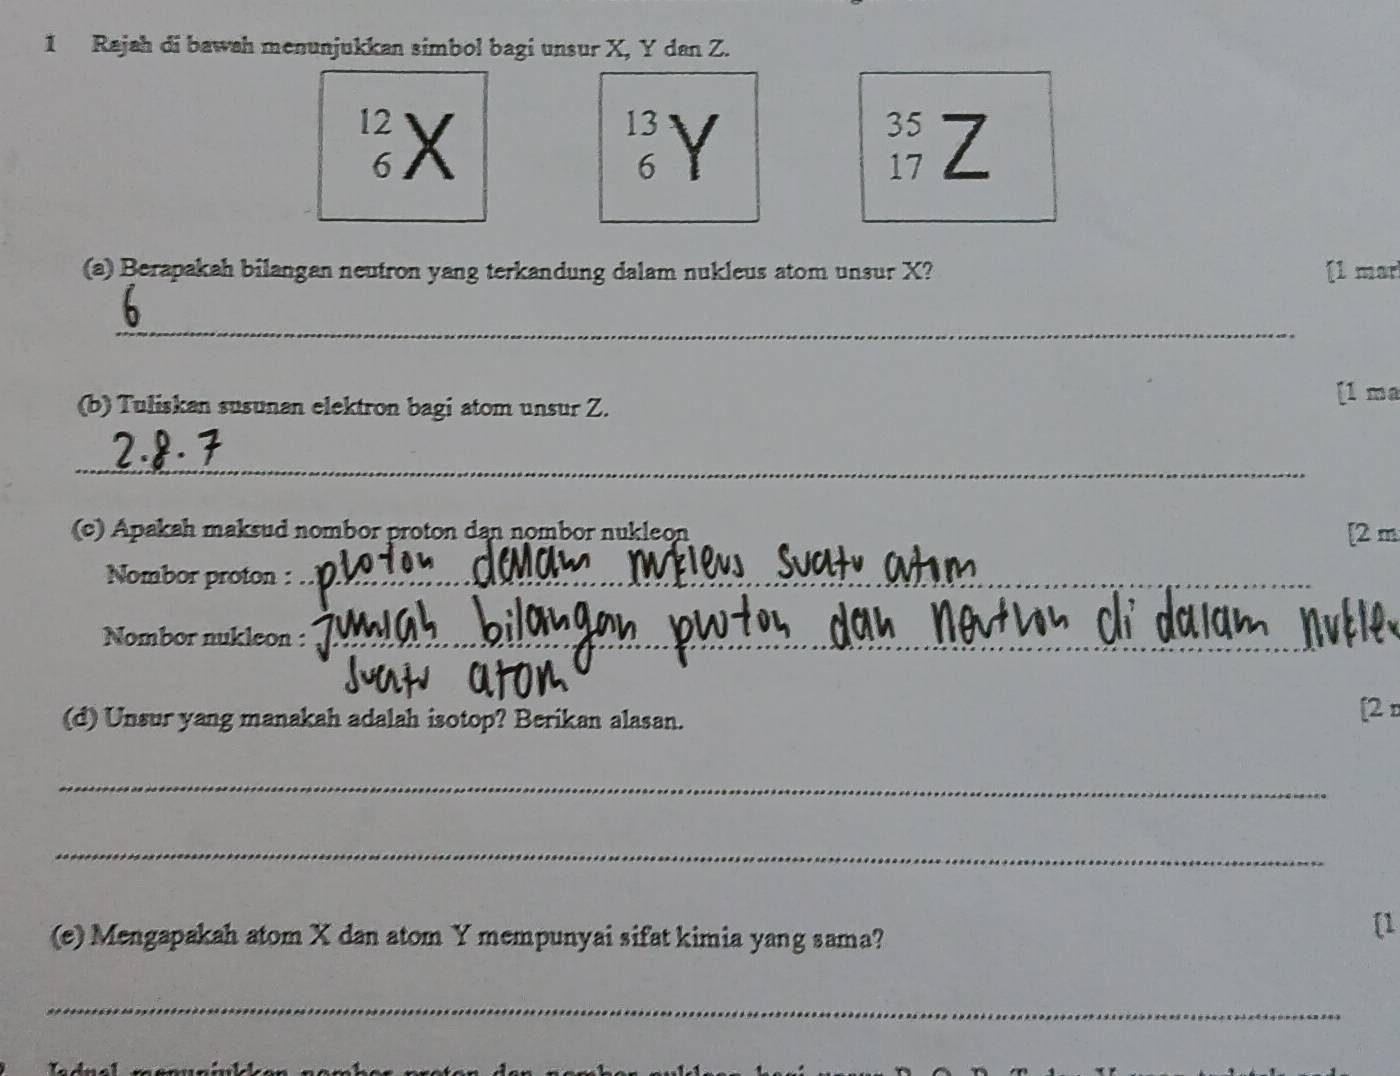 1 Rajah di bawah menunjukkan simbol bagi unsur X, Y dan Z.
12 6 X 13 6 Y 35 17 Z
(a) Berapakah bilangan neutron yang terkandung dalam nukleus atom unsur X? [1 mar
6
(b) Tuliskan susunan elektron bagi atom unsur Z. [1 ma
2.8.7
(c) Apakah maksud nombor proton dan nombor nukleon [2 m
Nombor proton : proton dalam nukleus suatu atom
Nombor nukleon : jumlah bilangan proton dan neutron di dalam nukle
suatu atom
(d) Unsur yang manakah adalah isotop? Berikan alasan. [2
(e) Mengapakah atom X dan atom Y mempunyai sifat kimia yang sama? [1